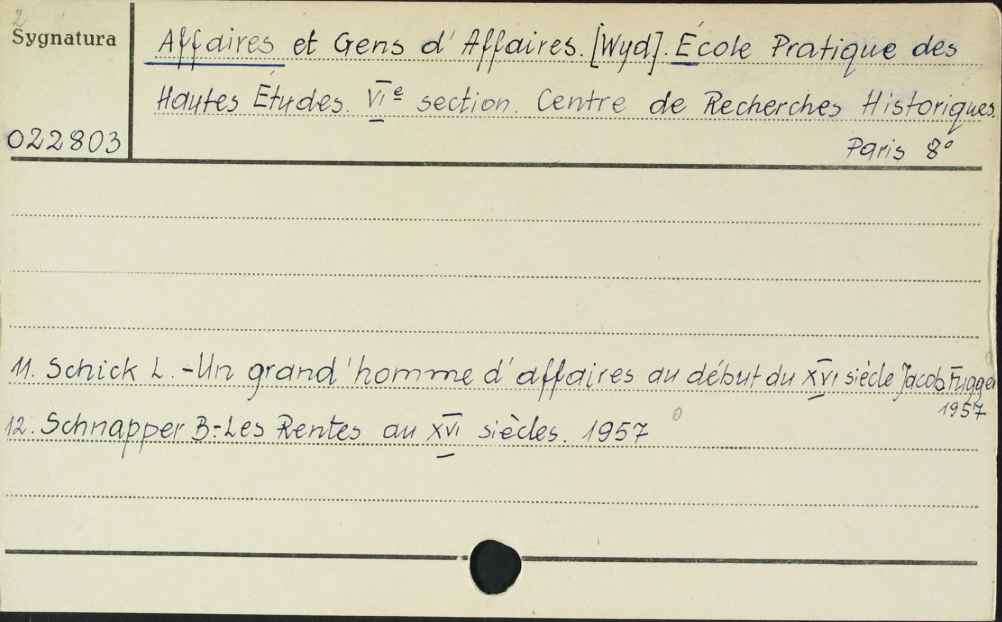 2
Sygnatura
Affaires et Gens d'Affaires. [Wyd]. École Pratique des
Hautes Études. VIe section. Centre de Recherches Historiques.
022803
Paris 8°
11. Schick L. - Un grand'homme d'affaires au début du XVI siècle Jacob Fugger
1957
12. Schnapper B. - Les Rentes au XVI siècles. 1957